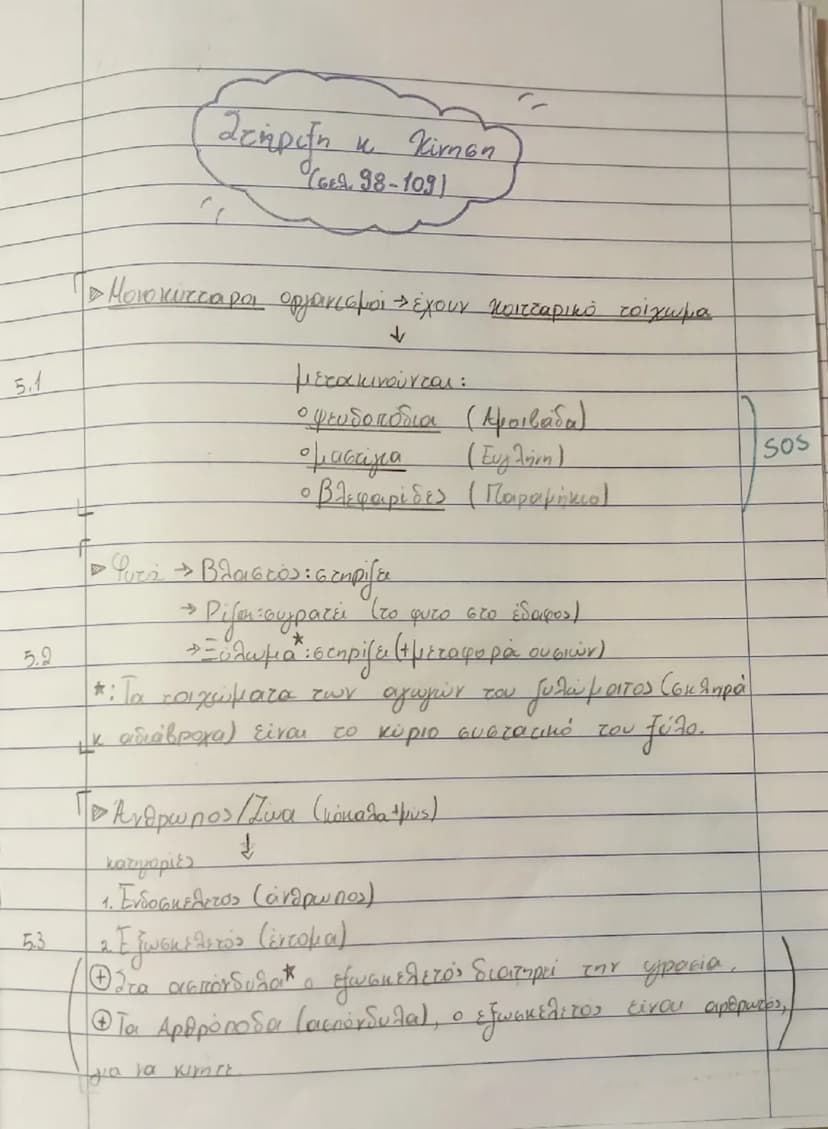 Στήριξη κ Κίνηση
(σελ. 98-109)
Μονοκύτταροι οργανισμοί → έχουν κυτταρικό τοίχωμα
↓
5.1
μετακινούνται:
ο ψευδοπόδια (Αμοιβάδα)
ο μαστίγια (Ευγλήνη)
ο Βλεφαρίδες (Παραμήκιο)
SOS
Φυτά → Βλαστός: στηρίζει
→ Ρίζα: συγρατεί (το φυτο στο έδαφος)
5.2
→ Ξύλωμα*: στηρίζει (+μεταφορά ουσιών)
*: Τα τοιχώματα των αγωγών του ξυλώματος (σκληρά
κ αδιάβροχα) είναι το κύριο συστατικό του ξύλο.
Άνθρωπος/Ζώα (κόκαλα + μυς)
↓
κατηγορίες
1. Ενδοσκελετος (άνθρωπος)
5.3
2. Εξωσκελετός (έντομα)
+ Στα ασπόνδυλα* ο εξωσκελετός διατηρεί την υγρασία.
+ Τα Αρθρόποδα (ασπόνδυλα), ο εξωσκελετος είναι αρθρωτός,
για να